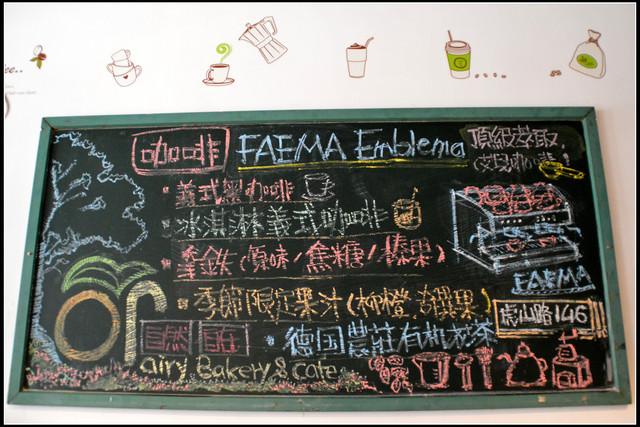 咖啡
FAEMA Emblema
頂級萃取,
義式黑咖啡
冰淇淋義式咖啡
拿鐵(原味/焦糖/榛果)
季節限定果汁(柳橙.奇異果)
德国農莊有机花茶
FAEMA
虎山路146
自然 自在
airy Bakery & cafe